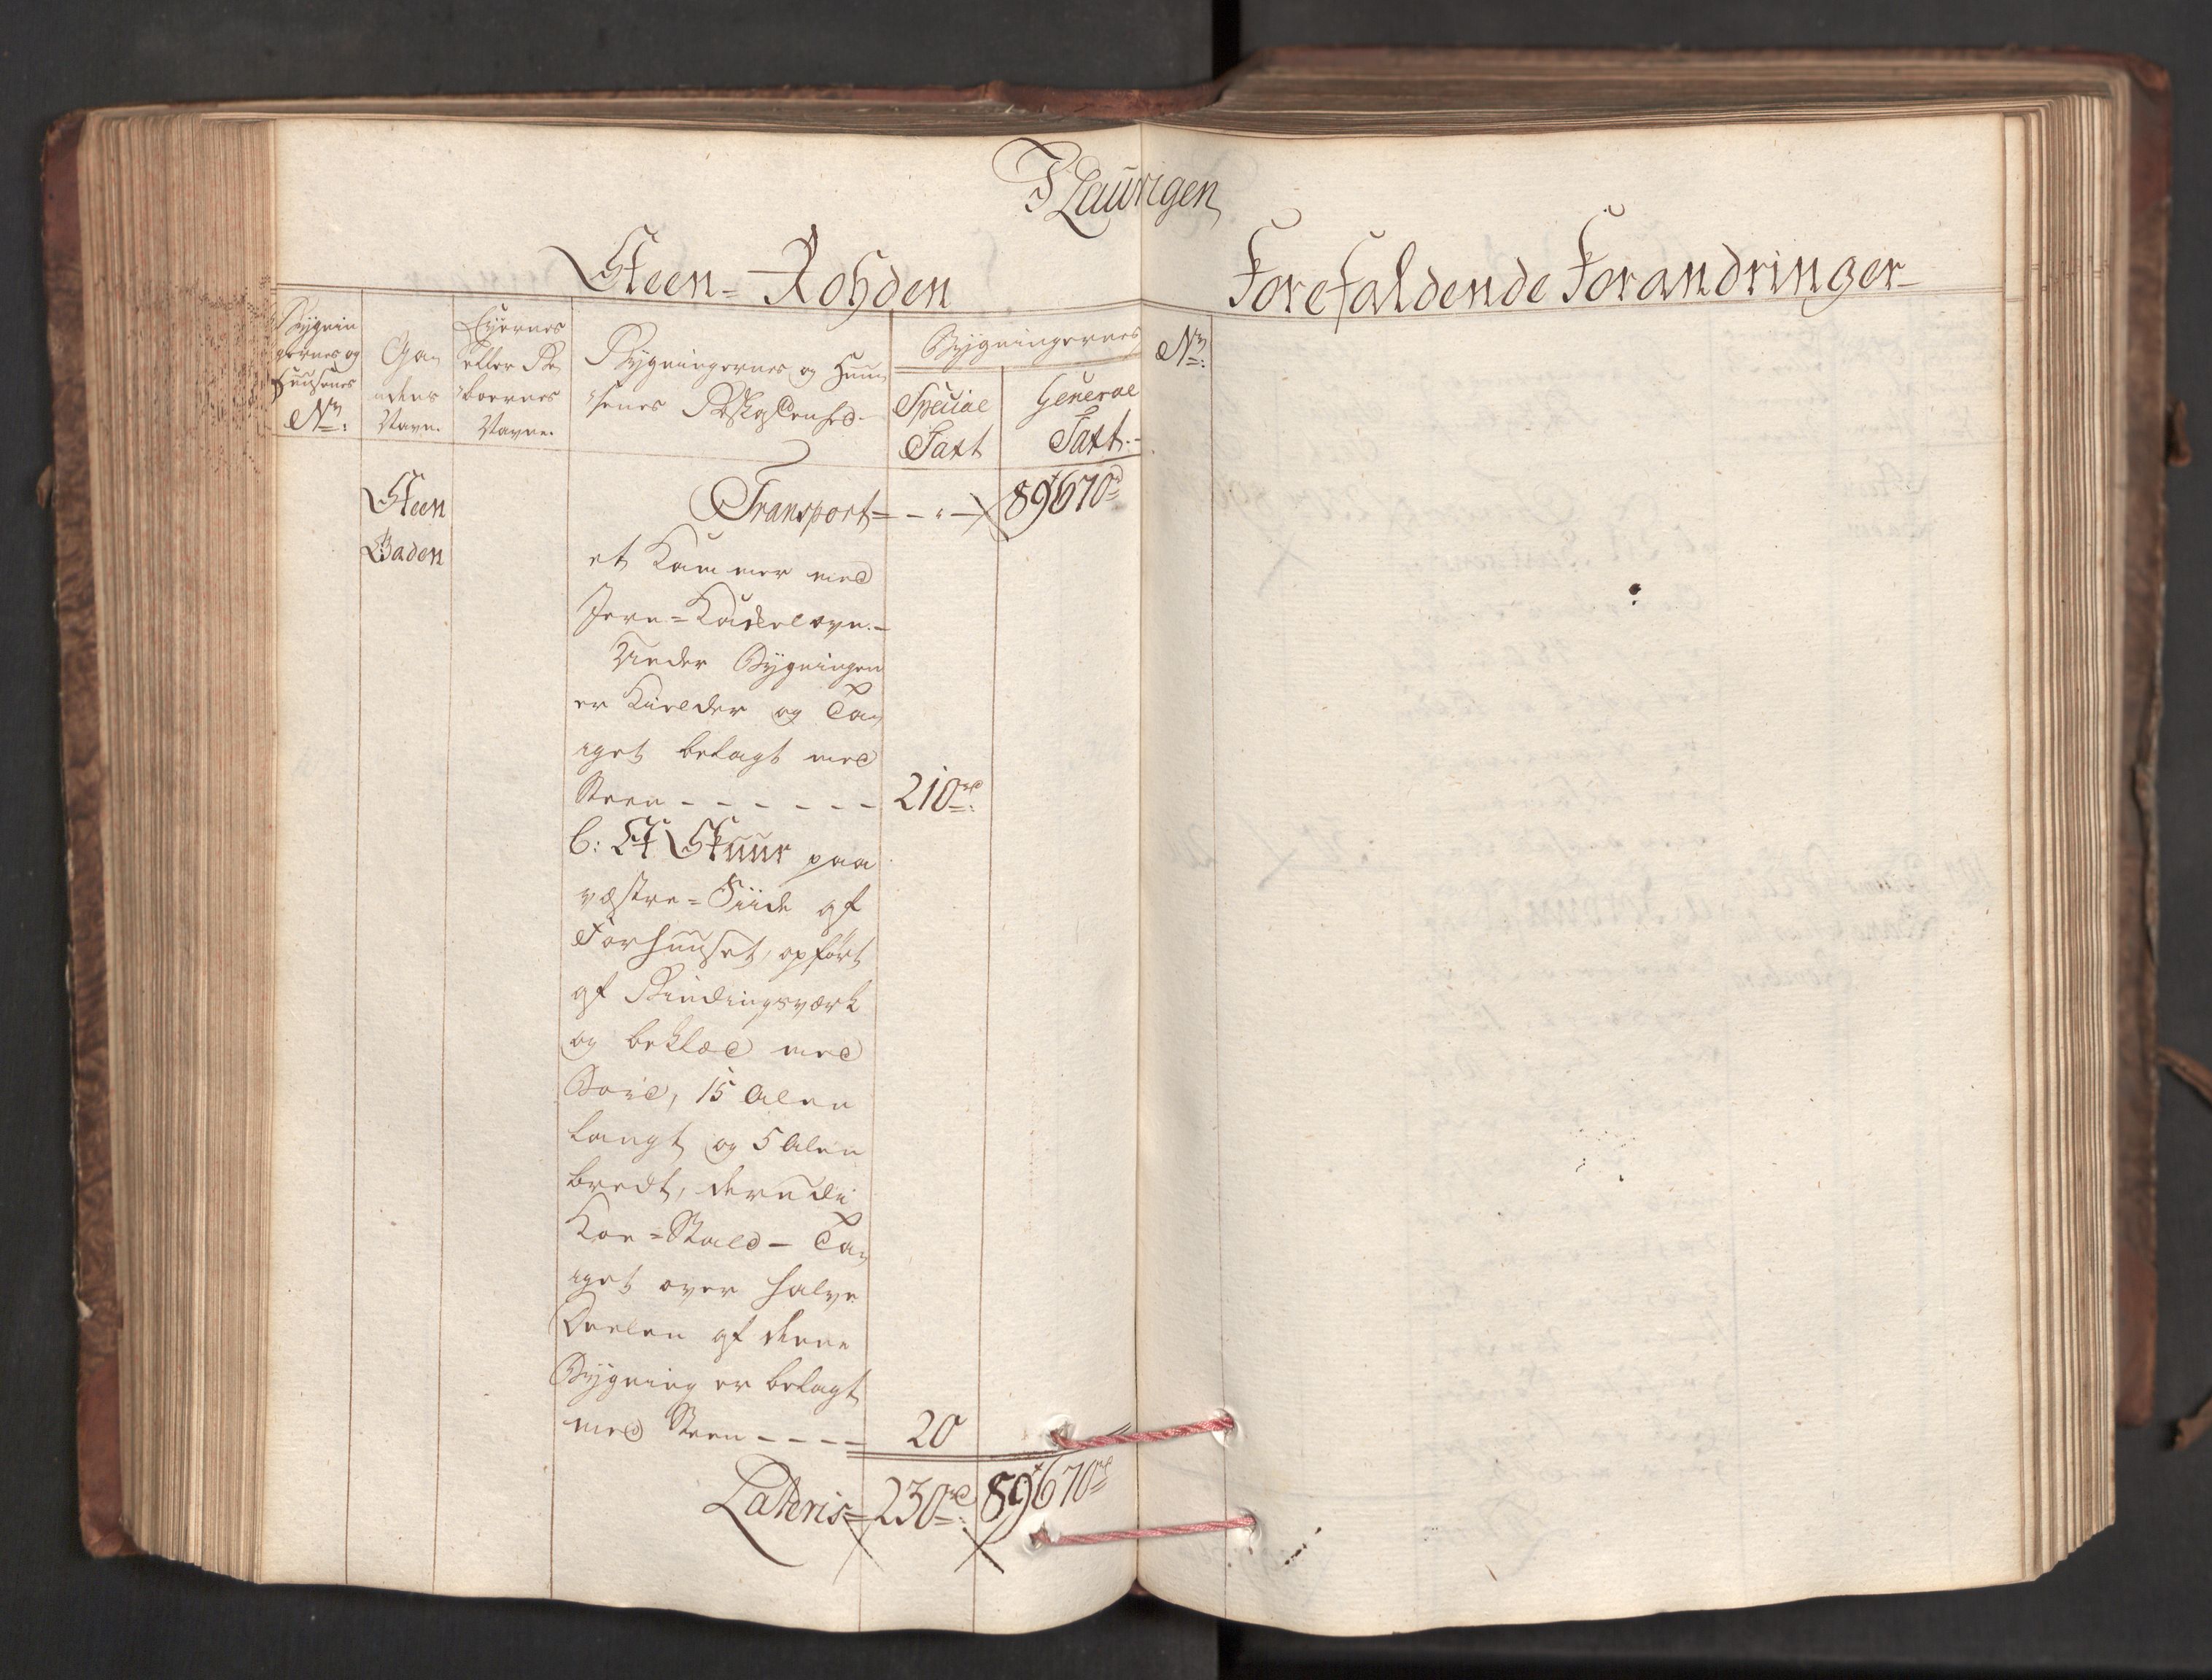 I Laurvigen
Steen-Rohden
Forefaldende Forandringer
Bygnin
gernes og
Huusenes
No:
Ga-
adens
Navn.
Eyernes
eller Be
boernes
Navne.
Bygningernes og Huu
senes Beskaffenhed.
Bygningernes
Special
Taxt
General
Taxt.
No:
Steen
Gaden
Transport 89670rd
et Kammer med
Jern-Kackelovn.
Under Bygningen
er Kielder og Ta
iget belagt med
Steen - - - - - - 210rd:
C: Et Skuur paa
vestre-Siide af
Forhuuset, opført
af Bindingsværk
og beklæd med
Bord, 15 Alen
langt og 5 Alen
bredt, derudi
Koe-Stald - Ta
iget over halve
Deelen af denne
Bygning er belagt
med Steen - - - - 20
Lateris 230rd: 89670rd